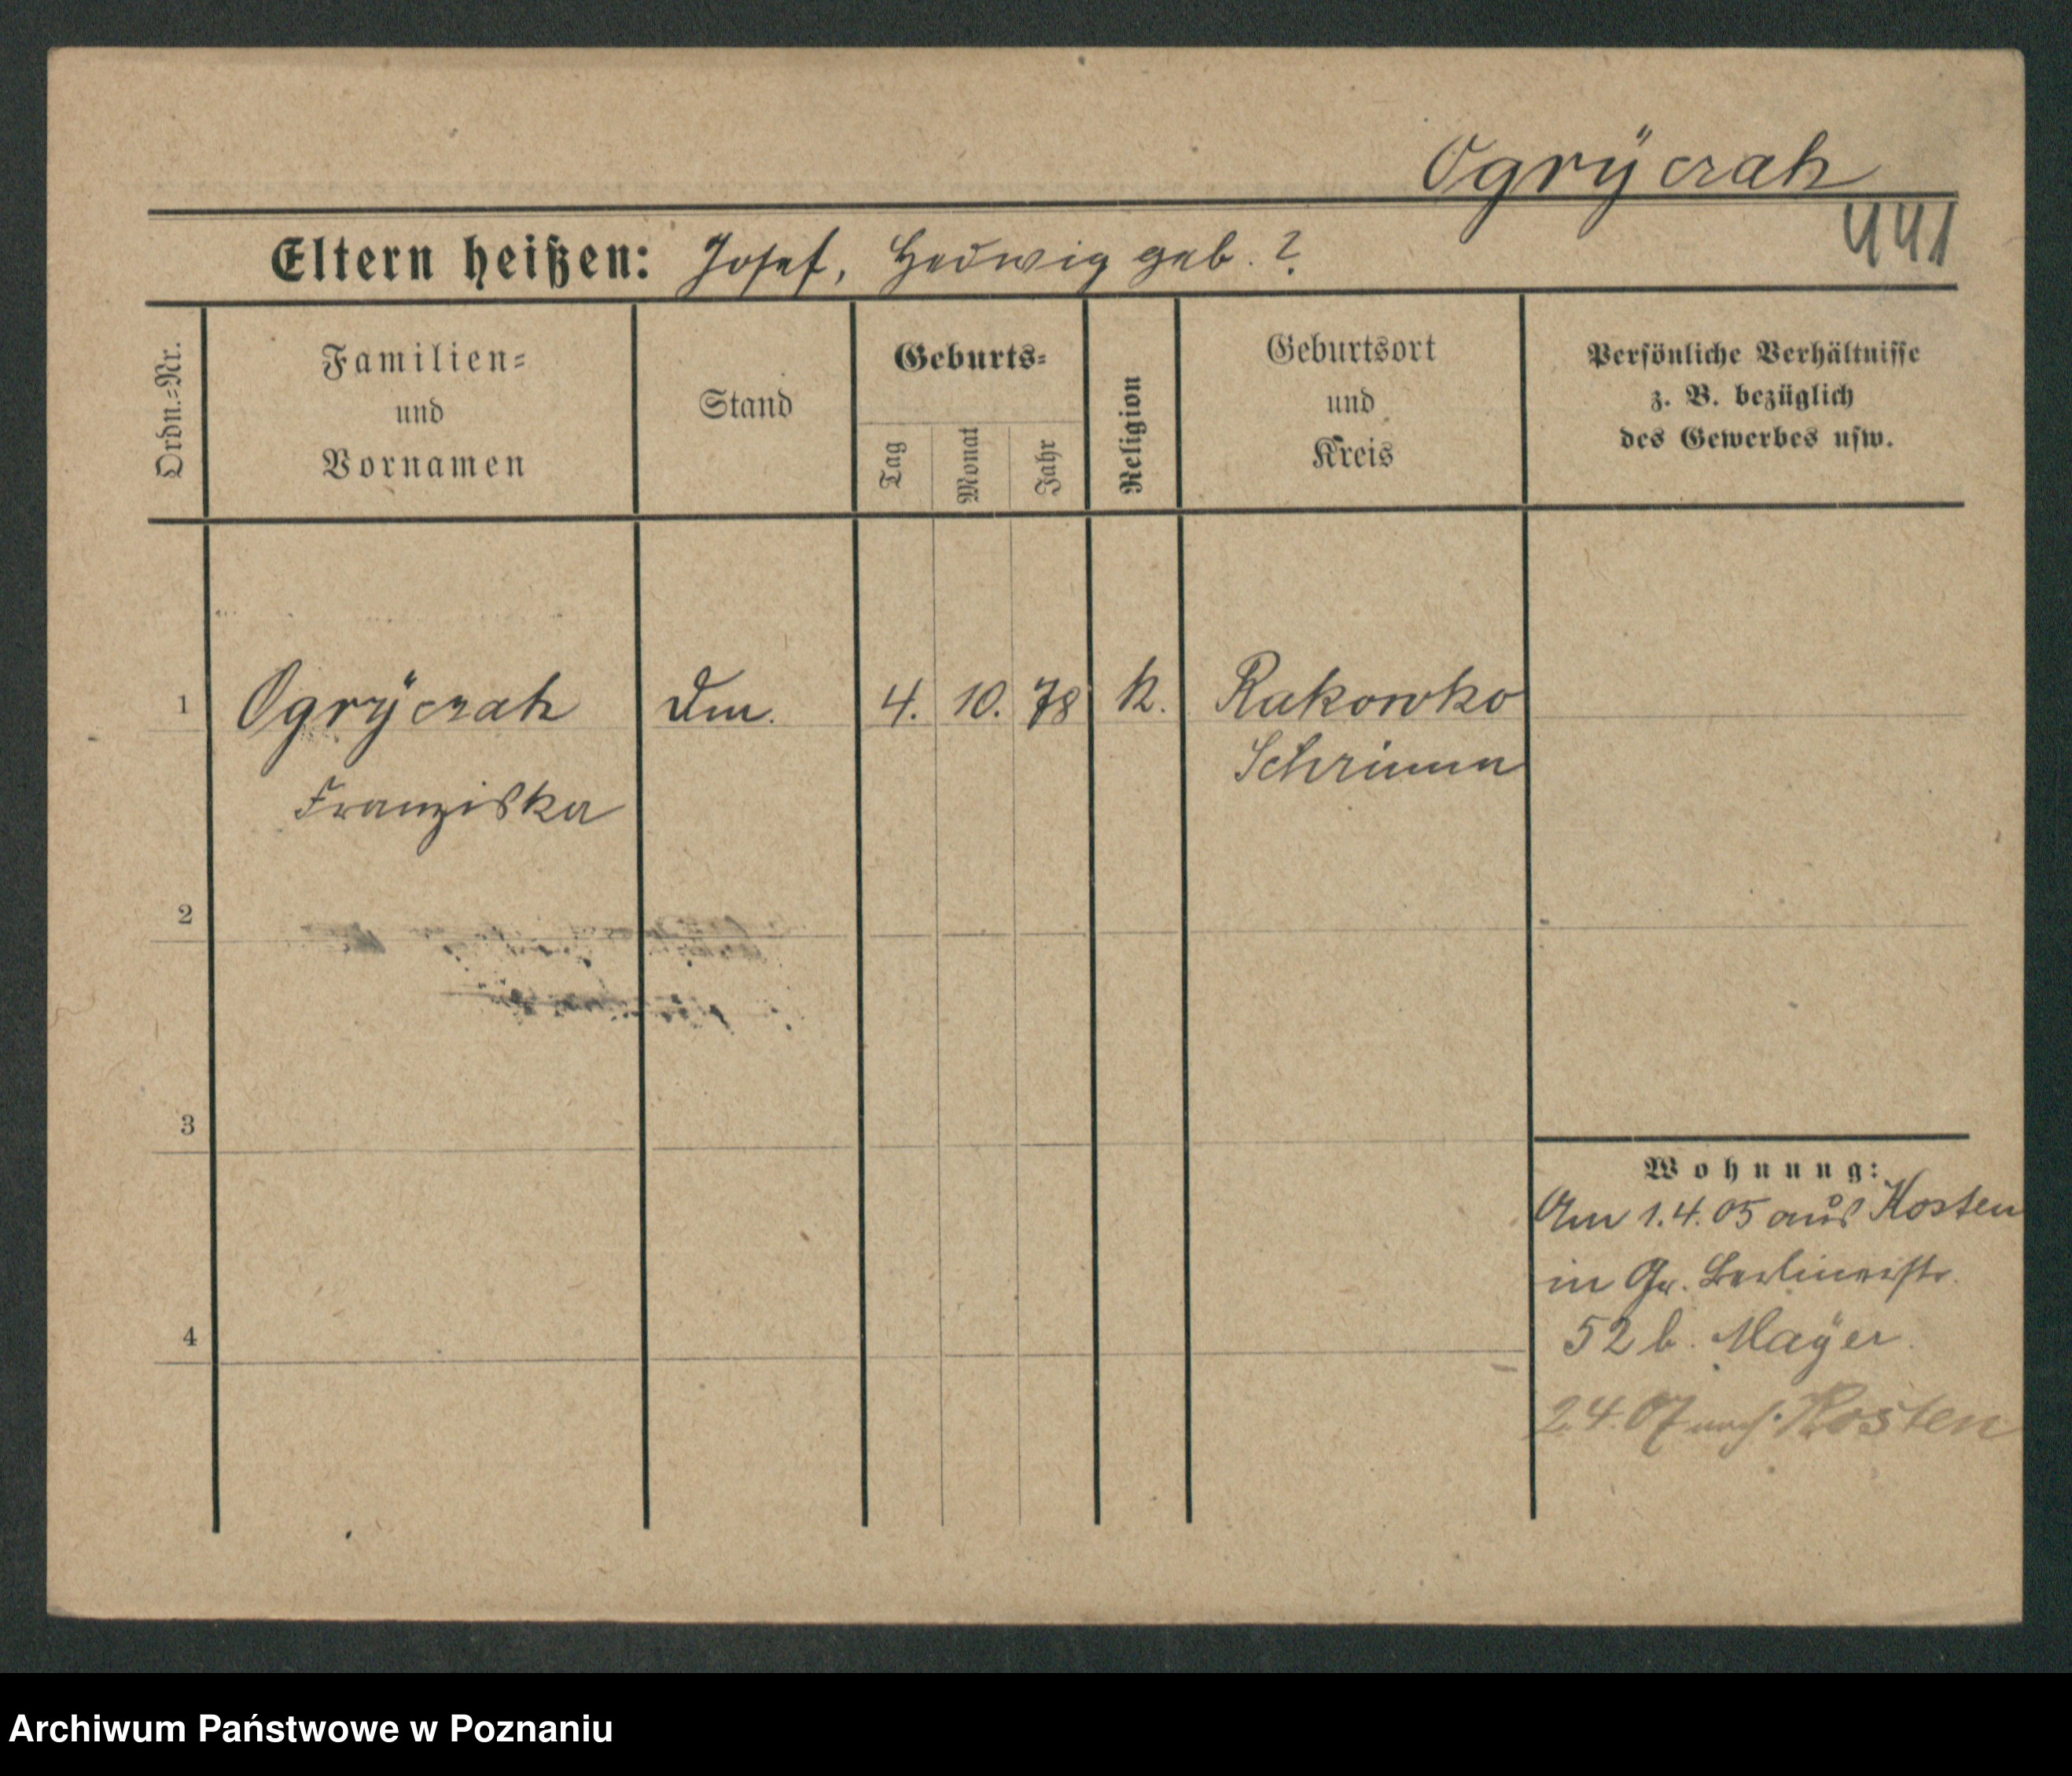 Ogrÿczak
441
Eltern heißen: Josef, Hedwig geb. ?
Ordn.=Nr.
Familien=
und
Vornamen
Stand
Geburts=
Tag
Monat
Jahr
Religion
Geburtsort
und
Kreis
Persönliche Verhältnisse
z. B. bezüglich
des Gewerbes usw.
1 Ogrÿczak Dm. 4. 10. 78 k. Rakowko
Schrimm
Franziska
2
3
4
Wohnung:
Am 1.4.05 aus Kosten
in Gr. Berlinerstr.
52 b. Maÿer.
2.4.07 nach Kosten
Archiwum Państwowe w Poznaniu